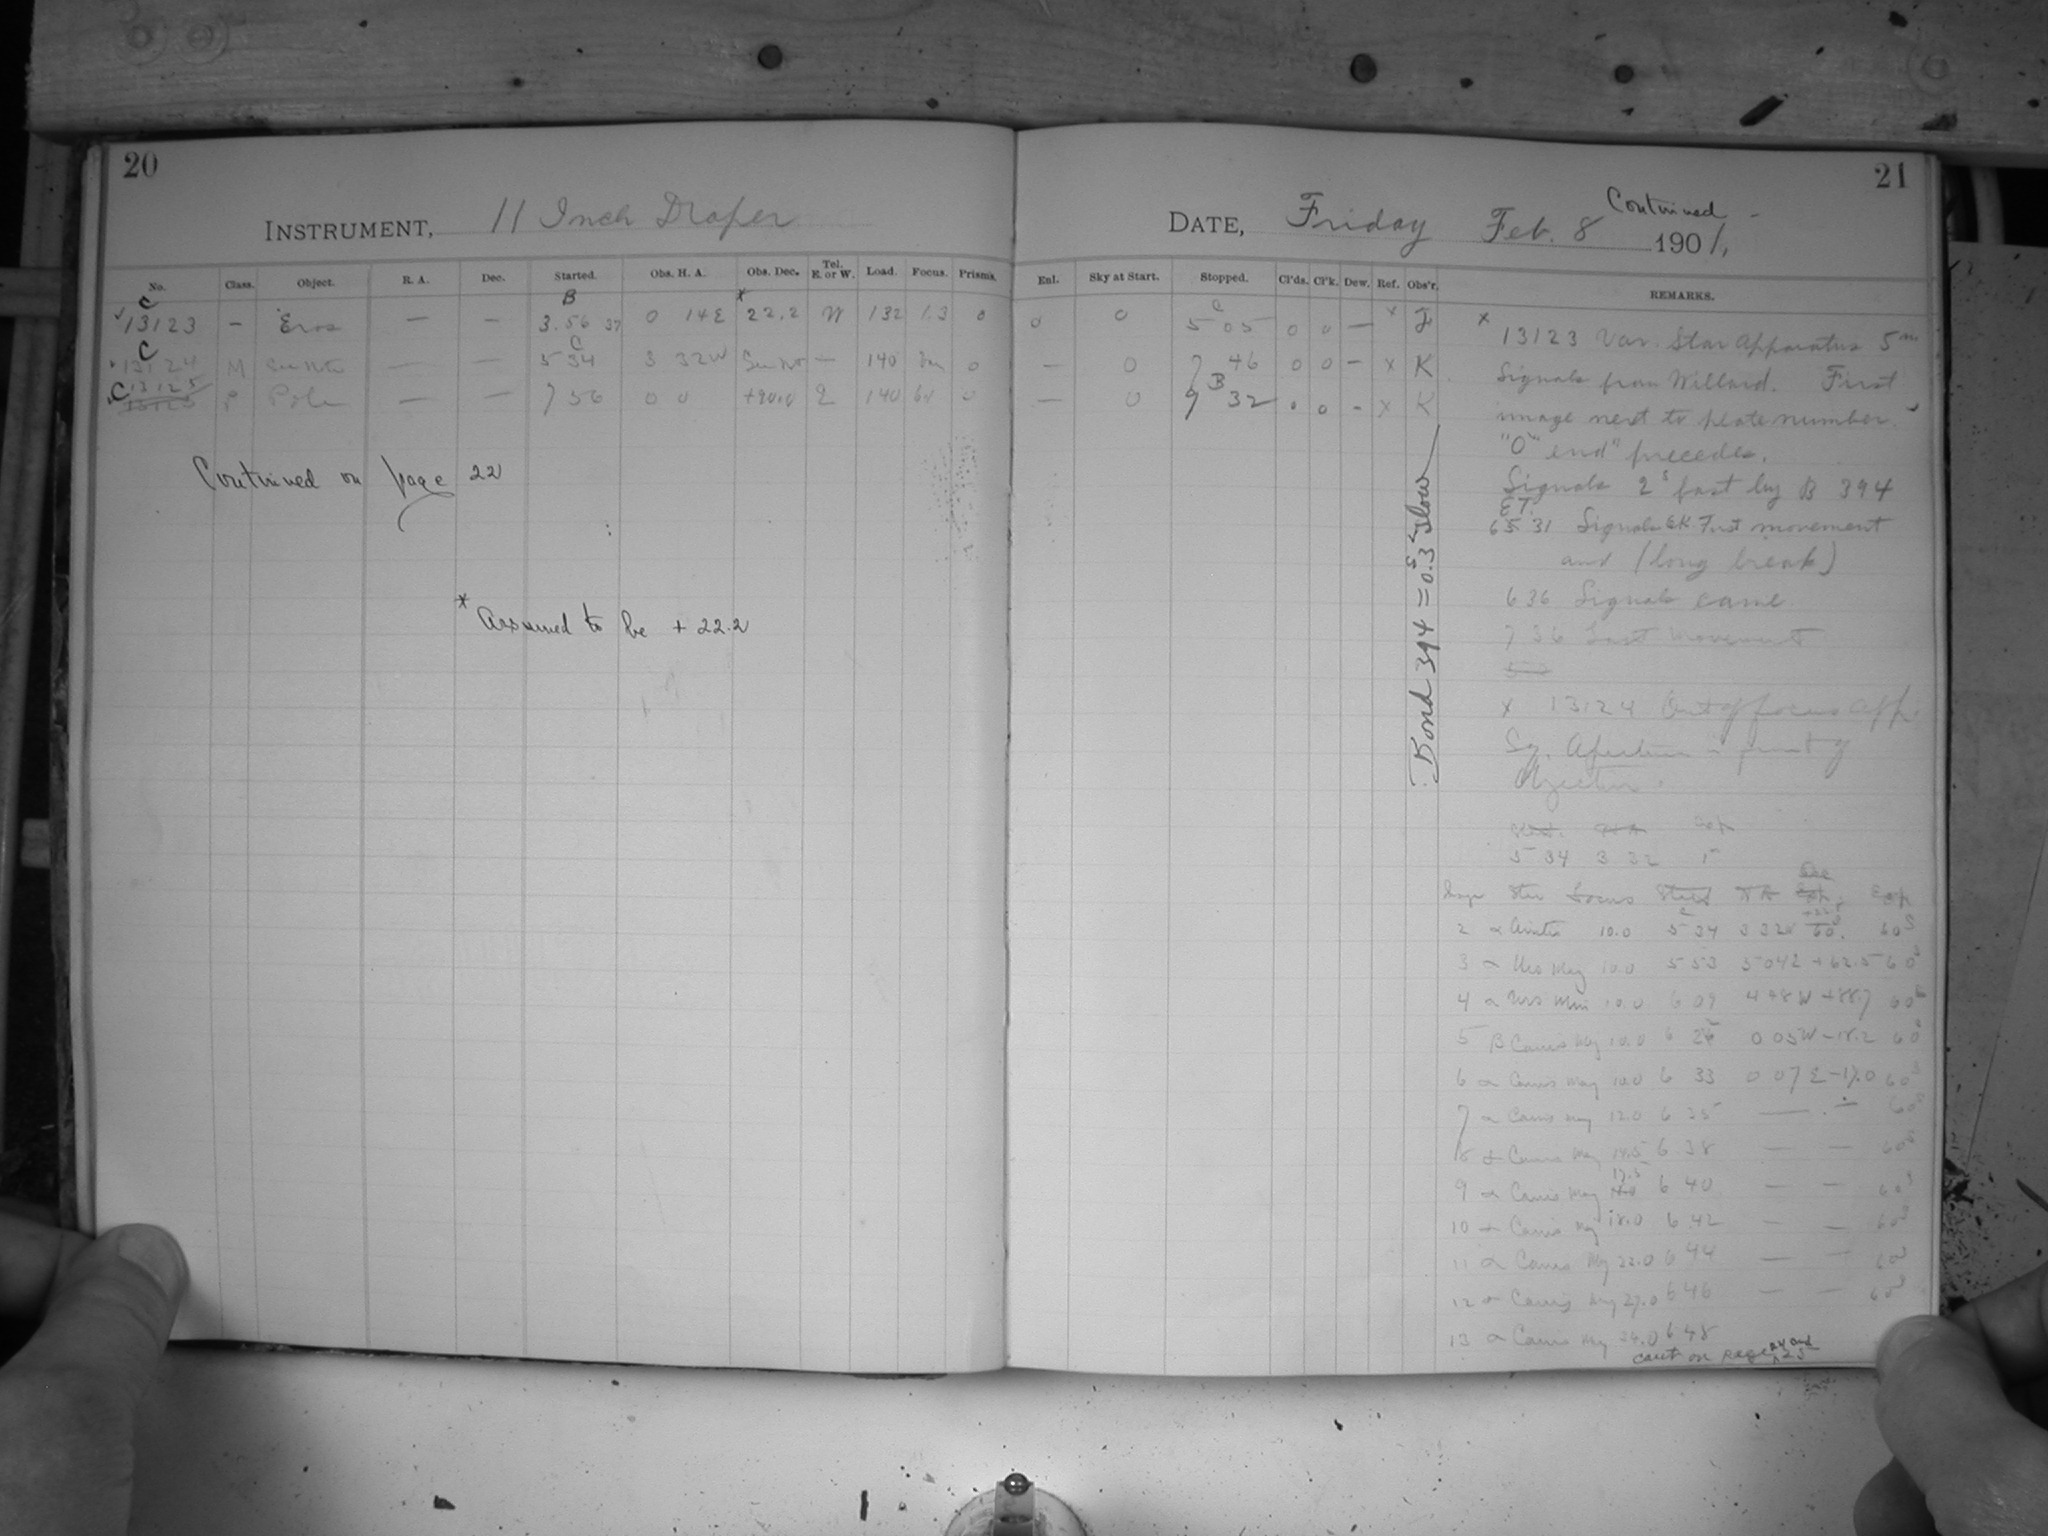 20
INSTRUMENT, 11 Inch Draper
No. Class. Object. R. A. Dec. Started. Obs. H. A. Obs. Dec. Tel. E. or W. Load. Focus. Prisms.
C B *
✓ 13123 – Eros — – 3.56 37 0 14E 22.2 W 132 1.3 0
C C
13124 M See Note — — 5 34 3 32W See Not — 140 0
C 13125 P Pole — — 7 56 0 0 +90.0 E 140 0
Continued on page 22
* Assumed to be + 22.2
21
Continued -
DATE, Friday Feb. 8 1901.
Enl. Sky at Start. Stopped. Cl'ds. Cl'k. Dew. Ref. Obs'r. REMARKS.
0 0 5 05 0 0 — x F
— 0 7 46 0 0 – x K
— 0 9 32 0 0 - x K
Bond 394 = 0.3s slow
x 13123 Var. Star Apparatus 5m
Signals from Willard. First
image next to plate number.
"0" end" precedes.
Signals 2s fast by B 394
E.T.
6 5 31 Signals First movement
and (long break)
6 36 Signals came
7 36 Last Movement
x 13124 Out of focus app.
Sq. Aperture in front of
Objective.
5 34 3 32 1
Image Star Focus H A Exp
2 10.0 5 34 3 32W 60s
3 α Urs Maj 10.0 5 53 5 04E +62.5 60s
4 α Urs Min 10.0 6 09 4 48W +88.7 60s
5 β Canis Maj 10.0 6 0 05W -18.2 60
6 α Canis Maj 10.0 6 33 0 07E -17.0 60s
7 α Canis Maj 12.0 6 35 — — 60s
8 α Canis Maj 6 38 — — 60s
9 α Canis Maj 6 40 — — 60s
10 α Canis Maj 18.0 6 42 — — 60s
11 α Canis Maj 22.0 6 44 — — 60s
12 α Canis Maj 6 46 — — 60s
13 α Canis Maj 6 48
cont on page 24 and 25